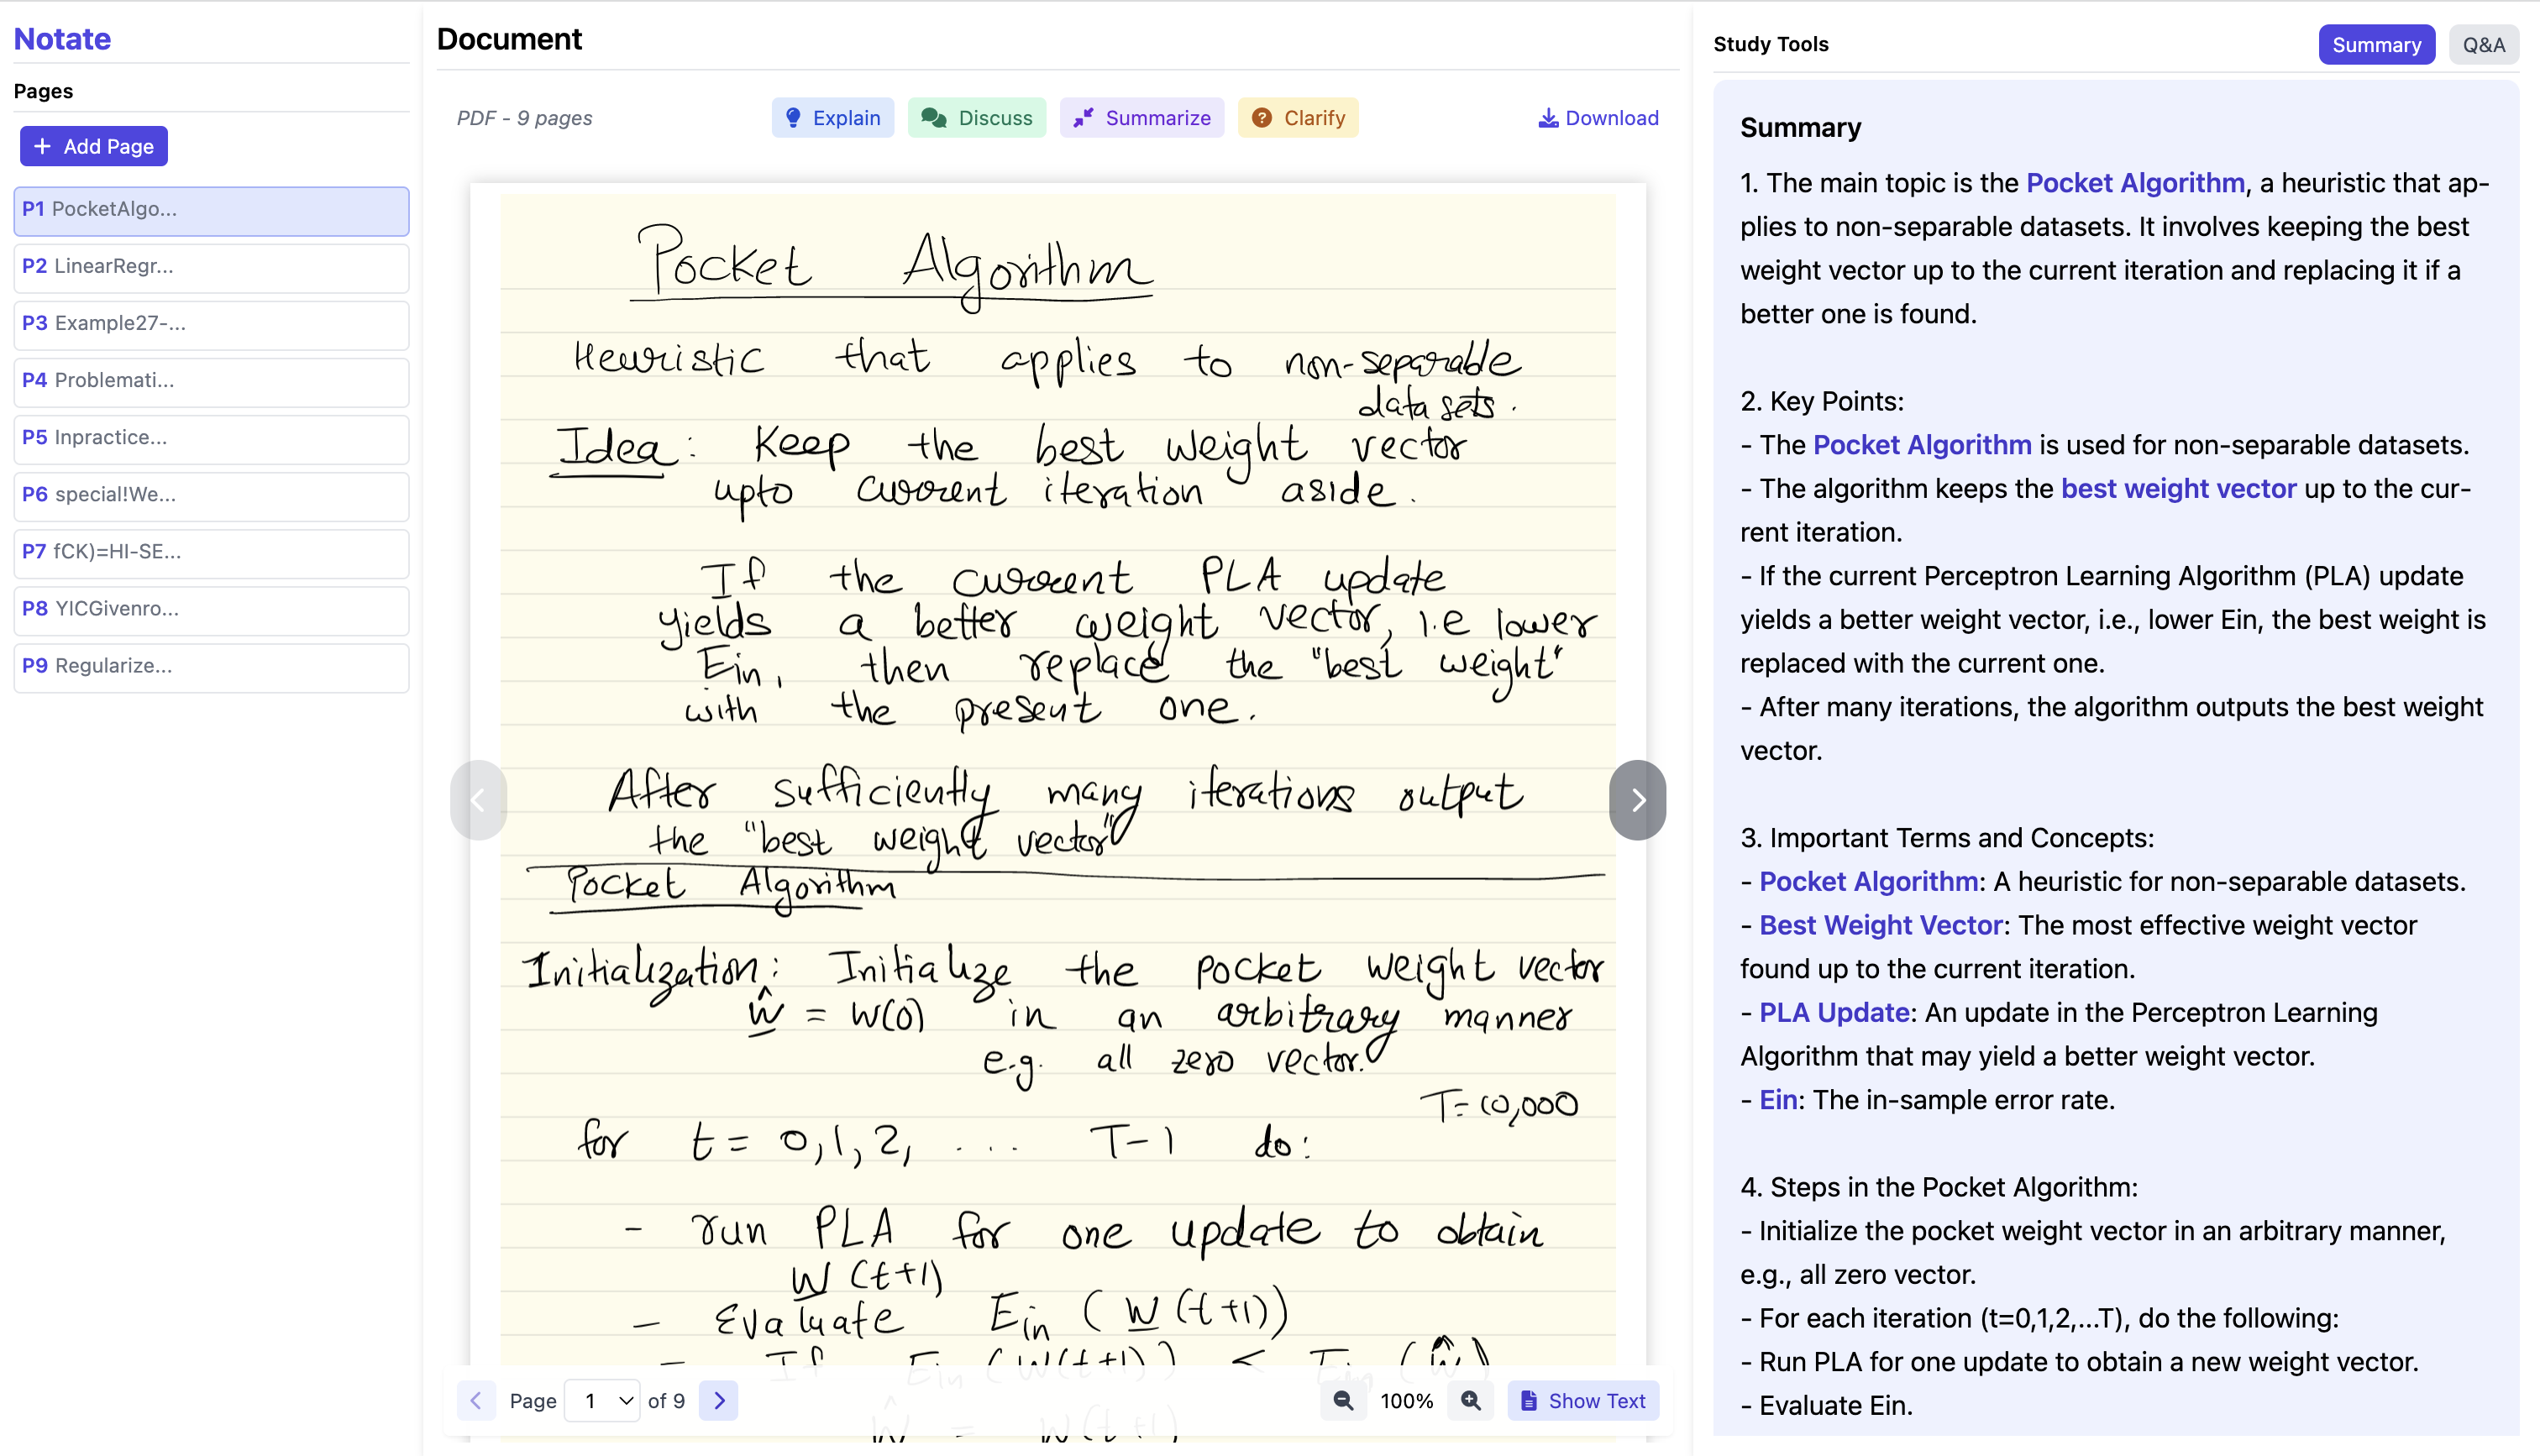 Notate
Pages
+ Add Page
P1 PocketAlgo...
P2 LinearRegr...
P3 Example27-...
P4 Problemati...
P5 Inpractice...
P6 special!We...
P7 fCK)=HI-SE...
P8 YICGivenro...
P9 Regularize...
Document
PDF - 9 pages
Explain
Discuss
Summarize
Clarify
Download
Pocket Algorithm
Heuristic that applies to non-separable
data sets.
Idea: Keep the best weight vector
upto current iteration aside.
If the current PLA update
yields a better weight vector, i.e lower
Ein, then replace the "best weight"
with the present one.
After sufficiently many iterations output
the "best weight vector"
Pocket Algorithm
Initialization: Initialize the pocket weight vector
ŵ = w(0) in an arbitrary manner
e.g. all zero vector.
T= 10,000
for t = 0,1,2, .... T-1 do:
- run PLA for one update to obtain
w (t+1)
- Evaluate Ein (w (t+1))
- If Ein (w(t+1)) < Ein (ŵ)
ŵ = w(t+1)
Page 1 of 9
100%
Show Text
Study Tools
Summary
Q&A
Summary
1. The main topic is the Pocket Algorithm, a heuristic that ap-
plies to non-separable datasets. It involves keeping the best
weight vector up to the current iteration and replacing it if a
better one is found.
2. Key Points:
- The Pocket Algorithm is used for non-separable datasets.
- The algorithm keeps the best weight vector up to the cur-
rent iteration.
- If the current Perceptron Learning Algorithm (PLA) update
yields a better weight vector, i.e., lower Ein, the best weight is
replaced with the current one.
- After many iterations, the algorithm outputs the best weight
vector.
3. Important Terms and Concepts:
- Pocket Algorithm: A heuristic for non-separable datasets.
- Best Weight Vector: The most effective weight vector
found up to the current iteration.
- PLA Update: An update in the Perceptron Learning
Algorithm that may yield a better weight vector.
- Ein: The in-sample error rate.
4. Steps in the Pocket Algorithm:
- Initialize the pocket weight vector in an arbitrary manner,
e.g., all zero vector.
- For each iteration (t=0,1,2,...T), do the following:
- Run PLA for one update to obtain a new weight vector.
- Evaluate Ein.